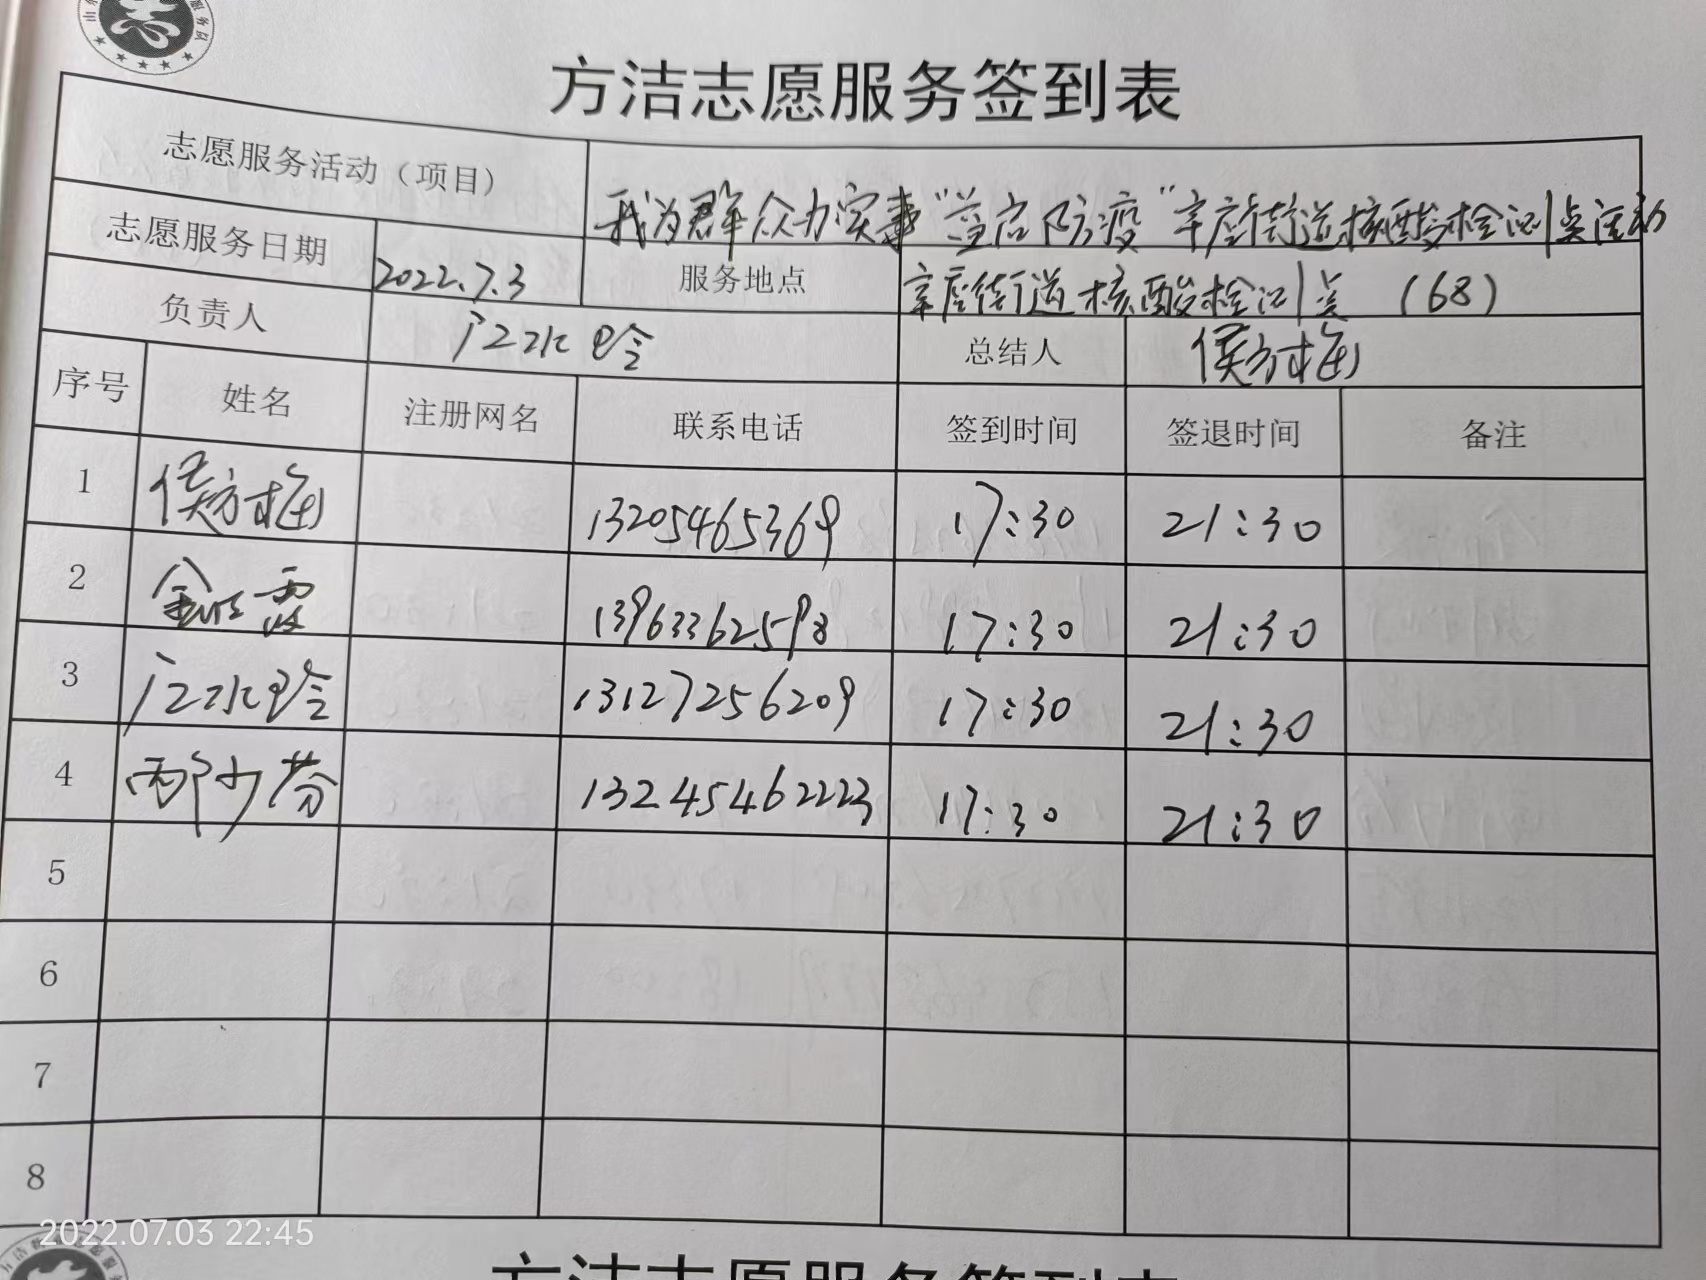 方洁志愿服务签到表
志愿服务活动（项目） 我为群众办实事“益启防疫”辛店街道核酸检测点活动
志愿服务日期 2022.7.3 服务地点 辛店街道核酸检测点（68）
负责人 总结人 侯方梅
序号 姓名 注册网名 联系电话 签到时间 签退时间 备注
1 侯方梅 13205465369 17:30 21:30
2 13963362598 17:30 21:30
3 13127256209 17:30 21:30
4 邴少芬 13245462223 17:30 21:30
5
6
7
8
2022.07.03 22:45
方洁志愿服务签到表